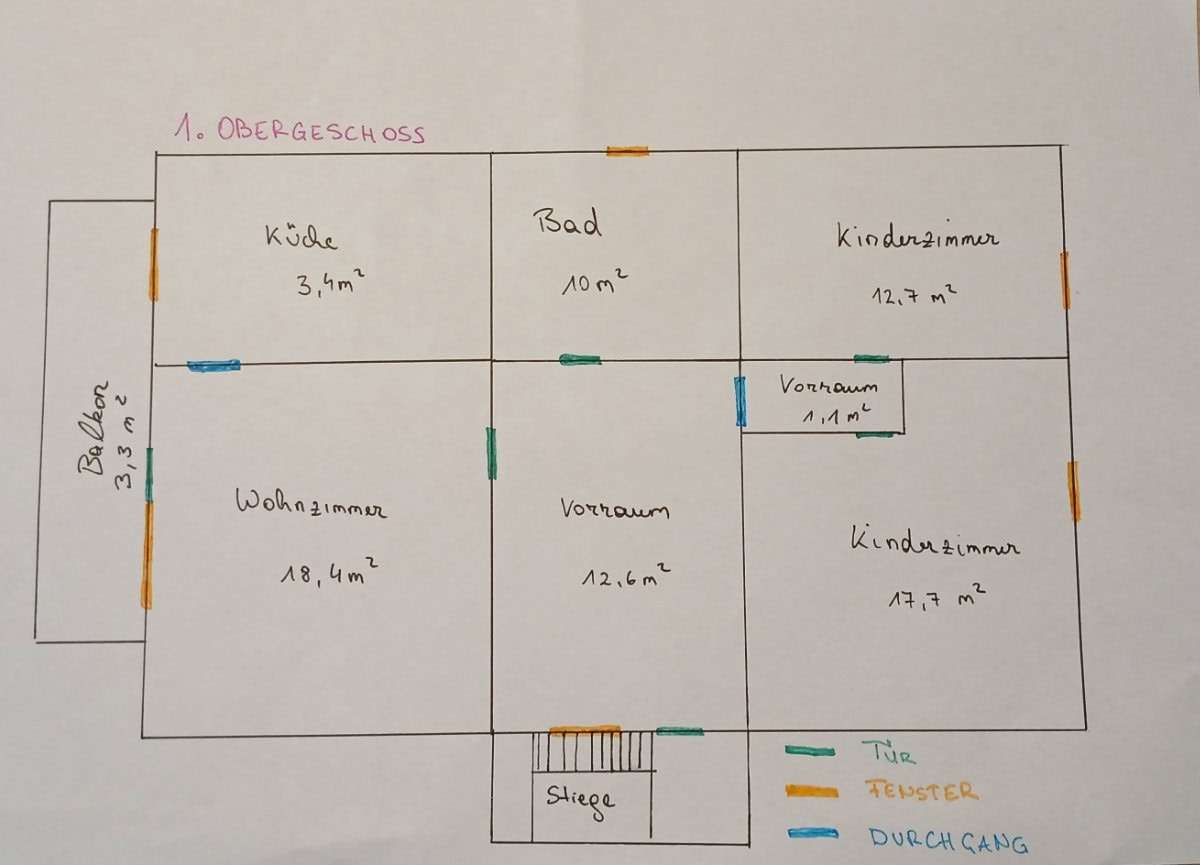 1. OBERGESCHOSS
Küche
3,4m²
Bad
10m²
Kinderzimmer
12,7 m²
Balkon
3,3 m²
Vorraum
1,1m²
Wohnzimmer
18,4m²
Vorraum
12,6m²
Kinderzimmer
17,7 m²
Stiege
TÜR
FENSTER
DURCHGANG